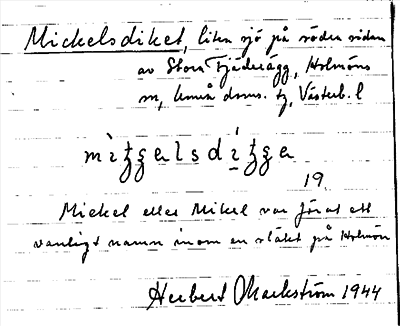 Mickelsdiket, liten sjö på södra sidan
av Stora Fjäderägg, Holmöns
sn, Umeå doms. tg, Västerb. l
19
Mickel eller Mikael var förut ett
vanligt namn inom en släkt på Holmön
Herbert Markström 1944